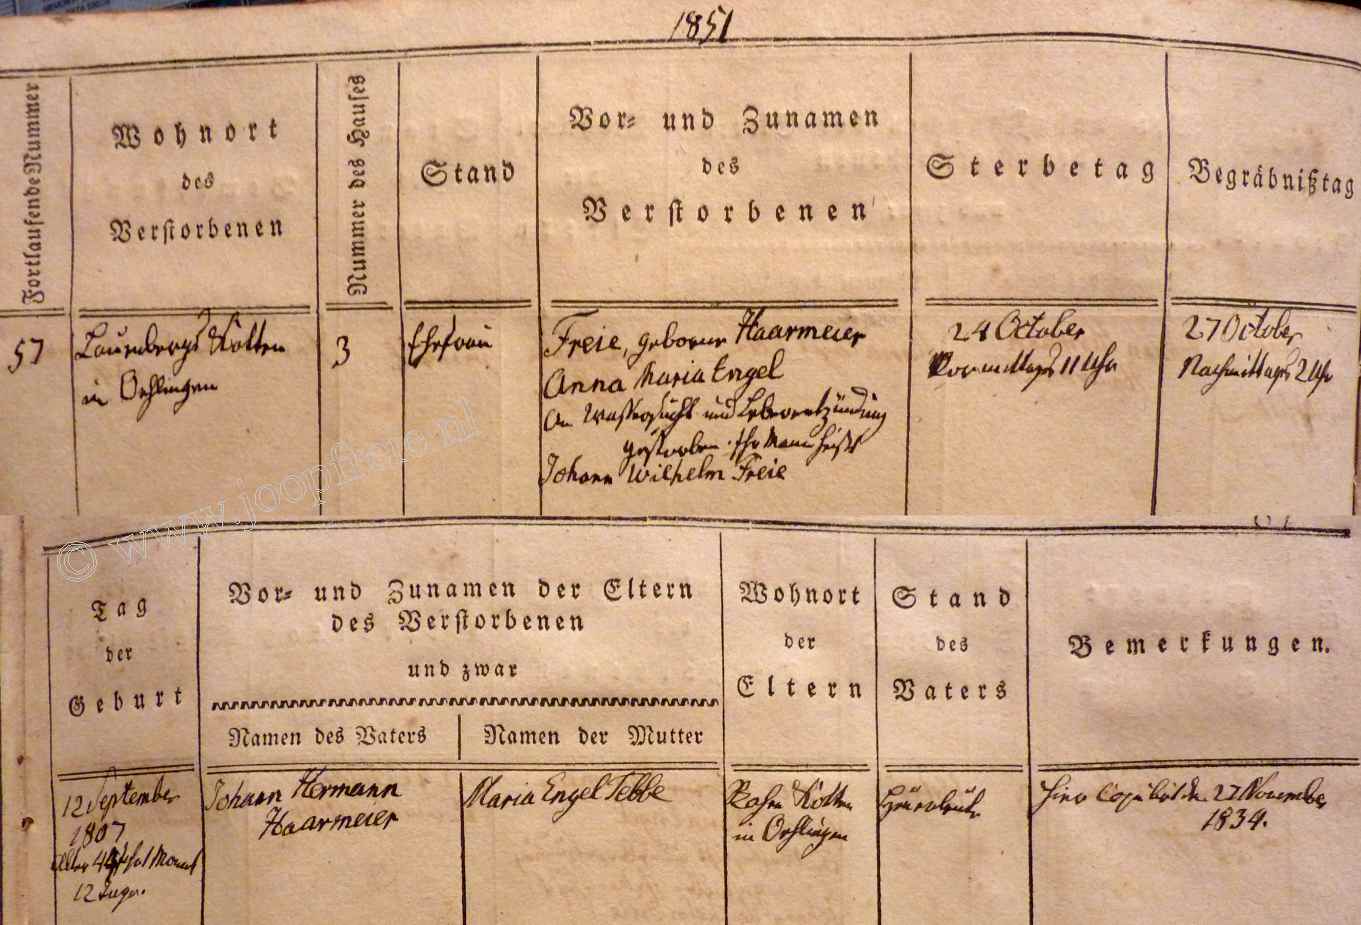 1851
Fortlaufende Nummer
Wohnort
des
Verstorbenen
Nummer des Hauses
Stand
Vor= und Zunamen
des
Verstorbenen
Sterbetag
Begräbnißtag
57
Laurenbergs Kotten
in Oechlingen
3
Ehefrau
Freie, geborne Haarmeier
Anna Maria Engel
An Wassersucht und Leberentzündung
gestorben. Ihr Mann heißt
Johann Wilhelm Freie
24 October
Vormittags 11 Uhr
27 October
Nachmittags 2 Uhr
© www.joopfreie.nl
Tag
der
Geburt
Vor= und Zunamen der Eltern
des Verstorbenen
und zwar
Namen des Vaters
Namen der Mutter
Wohnort
der
Eltern
Stand
des
Vaters
Bemerkungen.
12 September
1807
Alter 44 Jahr 1 Monat
12 Tage.
Johann Hermann
Haarmeier
Maria Engel Tebbe
Kotten
in Oechlingen
Heuerleute
Hier Copulirt den 27 November
1834.